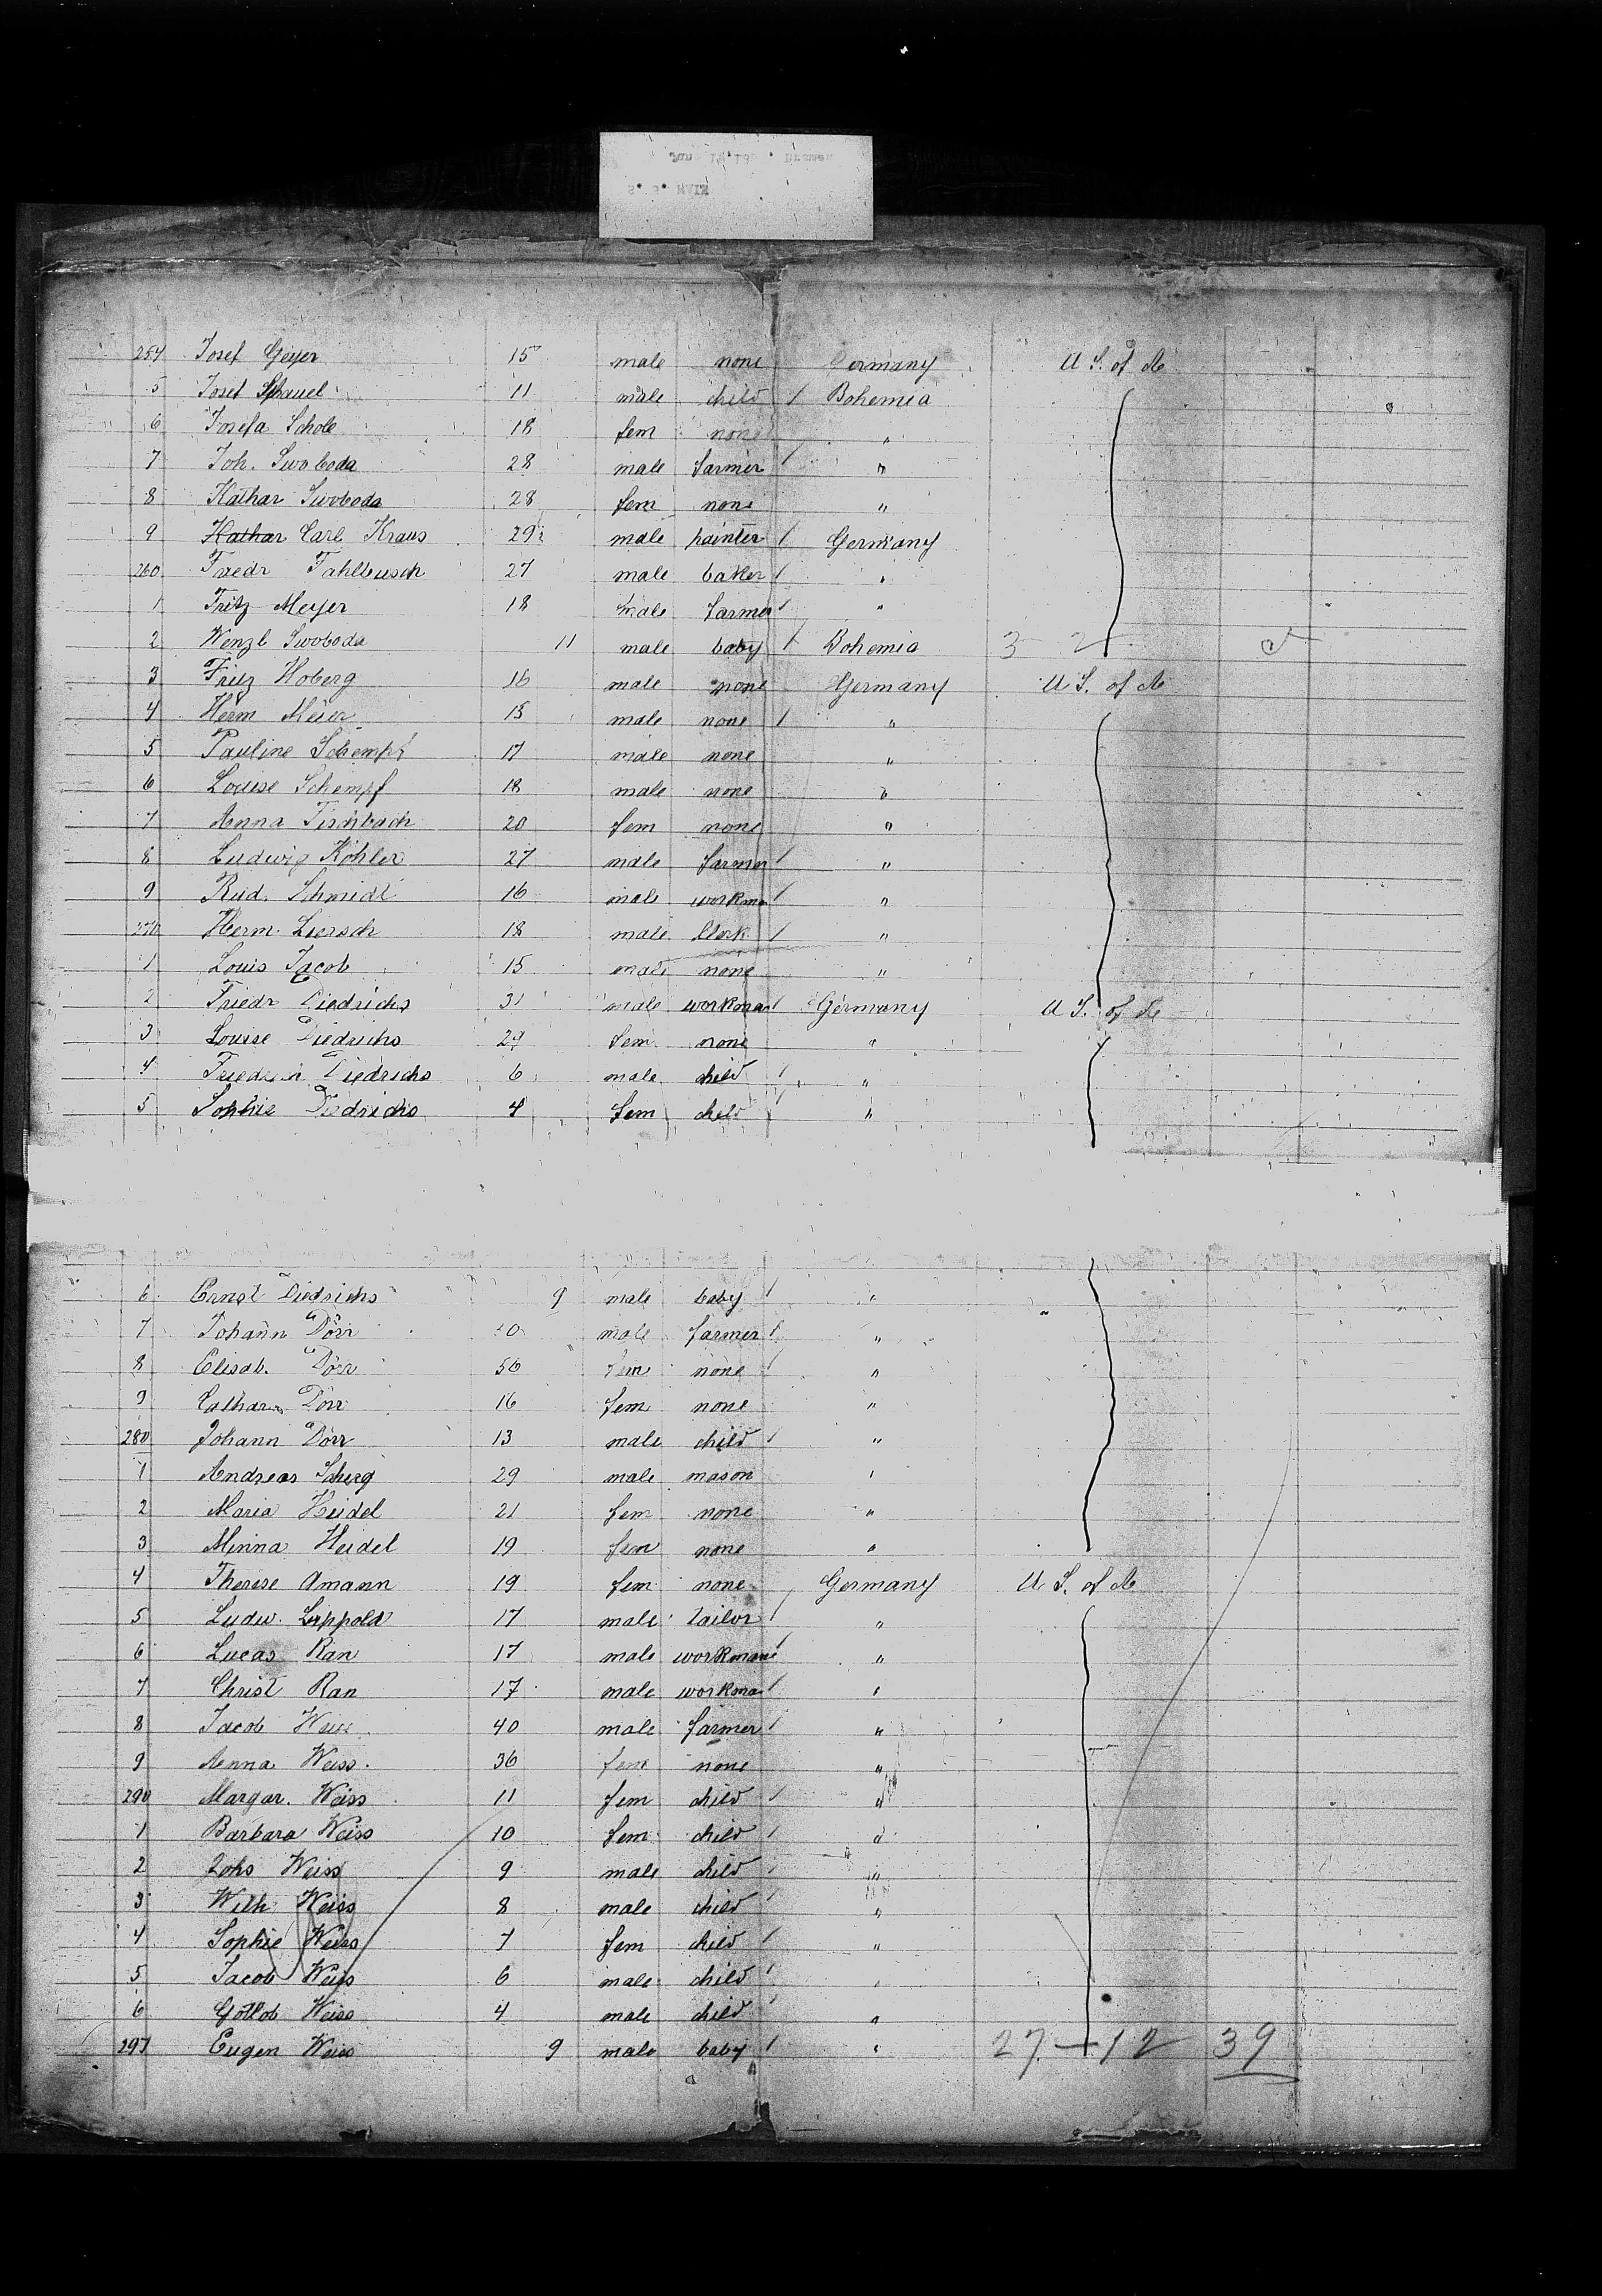 S. S. MAIN
254 Josef Geyer 15 male none Germany U S. of A
5 Josef 11 male child / Bohemia
6 Josefa Schole 18 fem none "
7 Joh. Swoboda 28 male farmer / "
8 Kathar Swoboda 28 fem none "
9 Kathar Carl Kraus 29 male painter / Germany
260 Friedr Fahlbusch 27 male baker / "
1 Fritz Meyer 18 male farmer / "
2 Wenzl Swoboda 11 male baby / Bohemia 3 2
3 Fritz Hoberg 16 male none Germany U S. of A
4 Herm Meier 15 male none / "
5 Pauline Schempf 17 male none "
6 Louise Schempf 18 male none "
7 Anna Fischbach 20 fem none "
8 Ludwig Köhler 27 male farmer / "
9 Rud. Schmidt 16 male workman / "
270 Herm. Liersch 18 male Clerk / "
1 Louis Jacob 15 male none "
2 Friedr Diedrichs 31 male workman / Germany U S. of A
3 Louise Diedrichs 29 fem none "
4 Friedrich Diedrichs 6 male child / "
5 Sophie Diedrichs 4 fem child / "
6 Ernst Diedrichs 9 male baby / "
7 Johann Dörr male farmer / "
8 Elisab. Dörr 56 fem none "
9 Cathar Dörr 16 fem none "
280 Johann Dörr 13 male child / "
1 Andreas Scherg 29 male mason "
2 Maria Heidel 21 fem none "
3 Minna Heidel 19 fem none "
4 Therese Amann 19 fem none Germany U S. of A
5 Ludw. Lippold 17 male tailor / "
6 Lucas Ran 17 male workman / "
7 Christ Ran 17 male workman / "
8 Jacob Weiss 40 male farmer / "
9 Anna Weiss. 36 fem none "
290 Margar. Weiss 11 fem child / "
1 Barbara Weiss 10 fem child / "
2 Johs Weiss 9 male child / "
3 Wilh Weiss 8 male child / "
4 Sophie Weiss 7 fem child / "
5 Jacob Weiss 6 male child / "
6 Gottlob Weiss 4 male child / "
297 Eugen Weiss 9 male baby / " 27 - 12 39